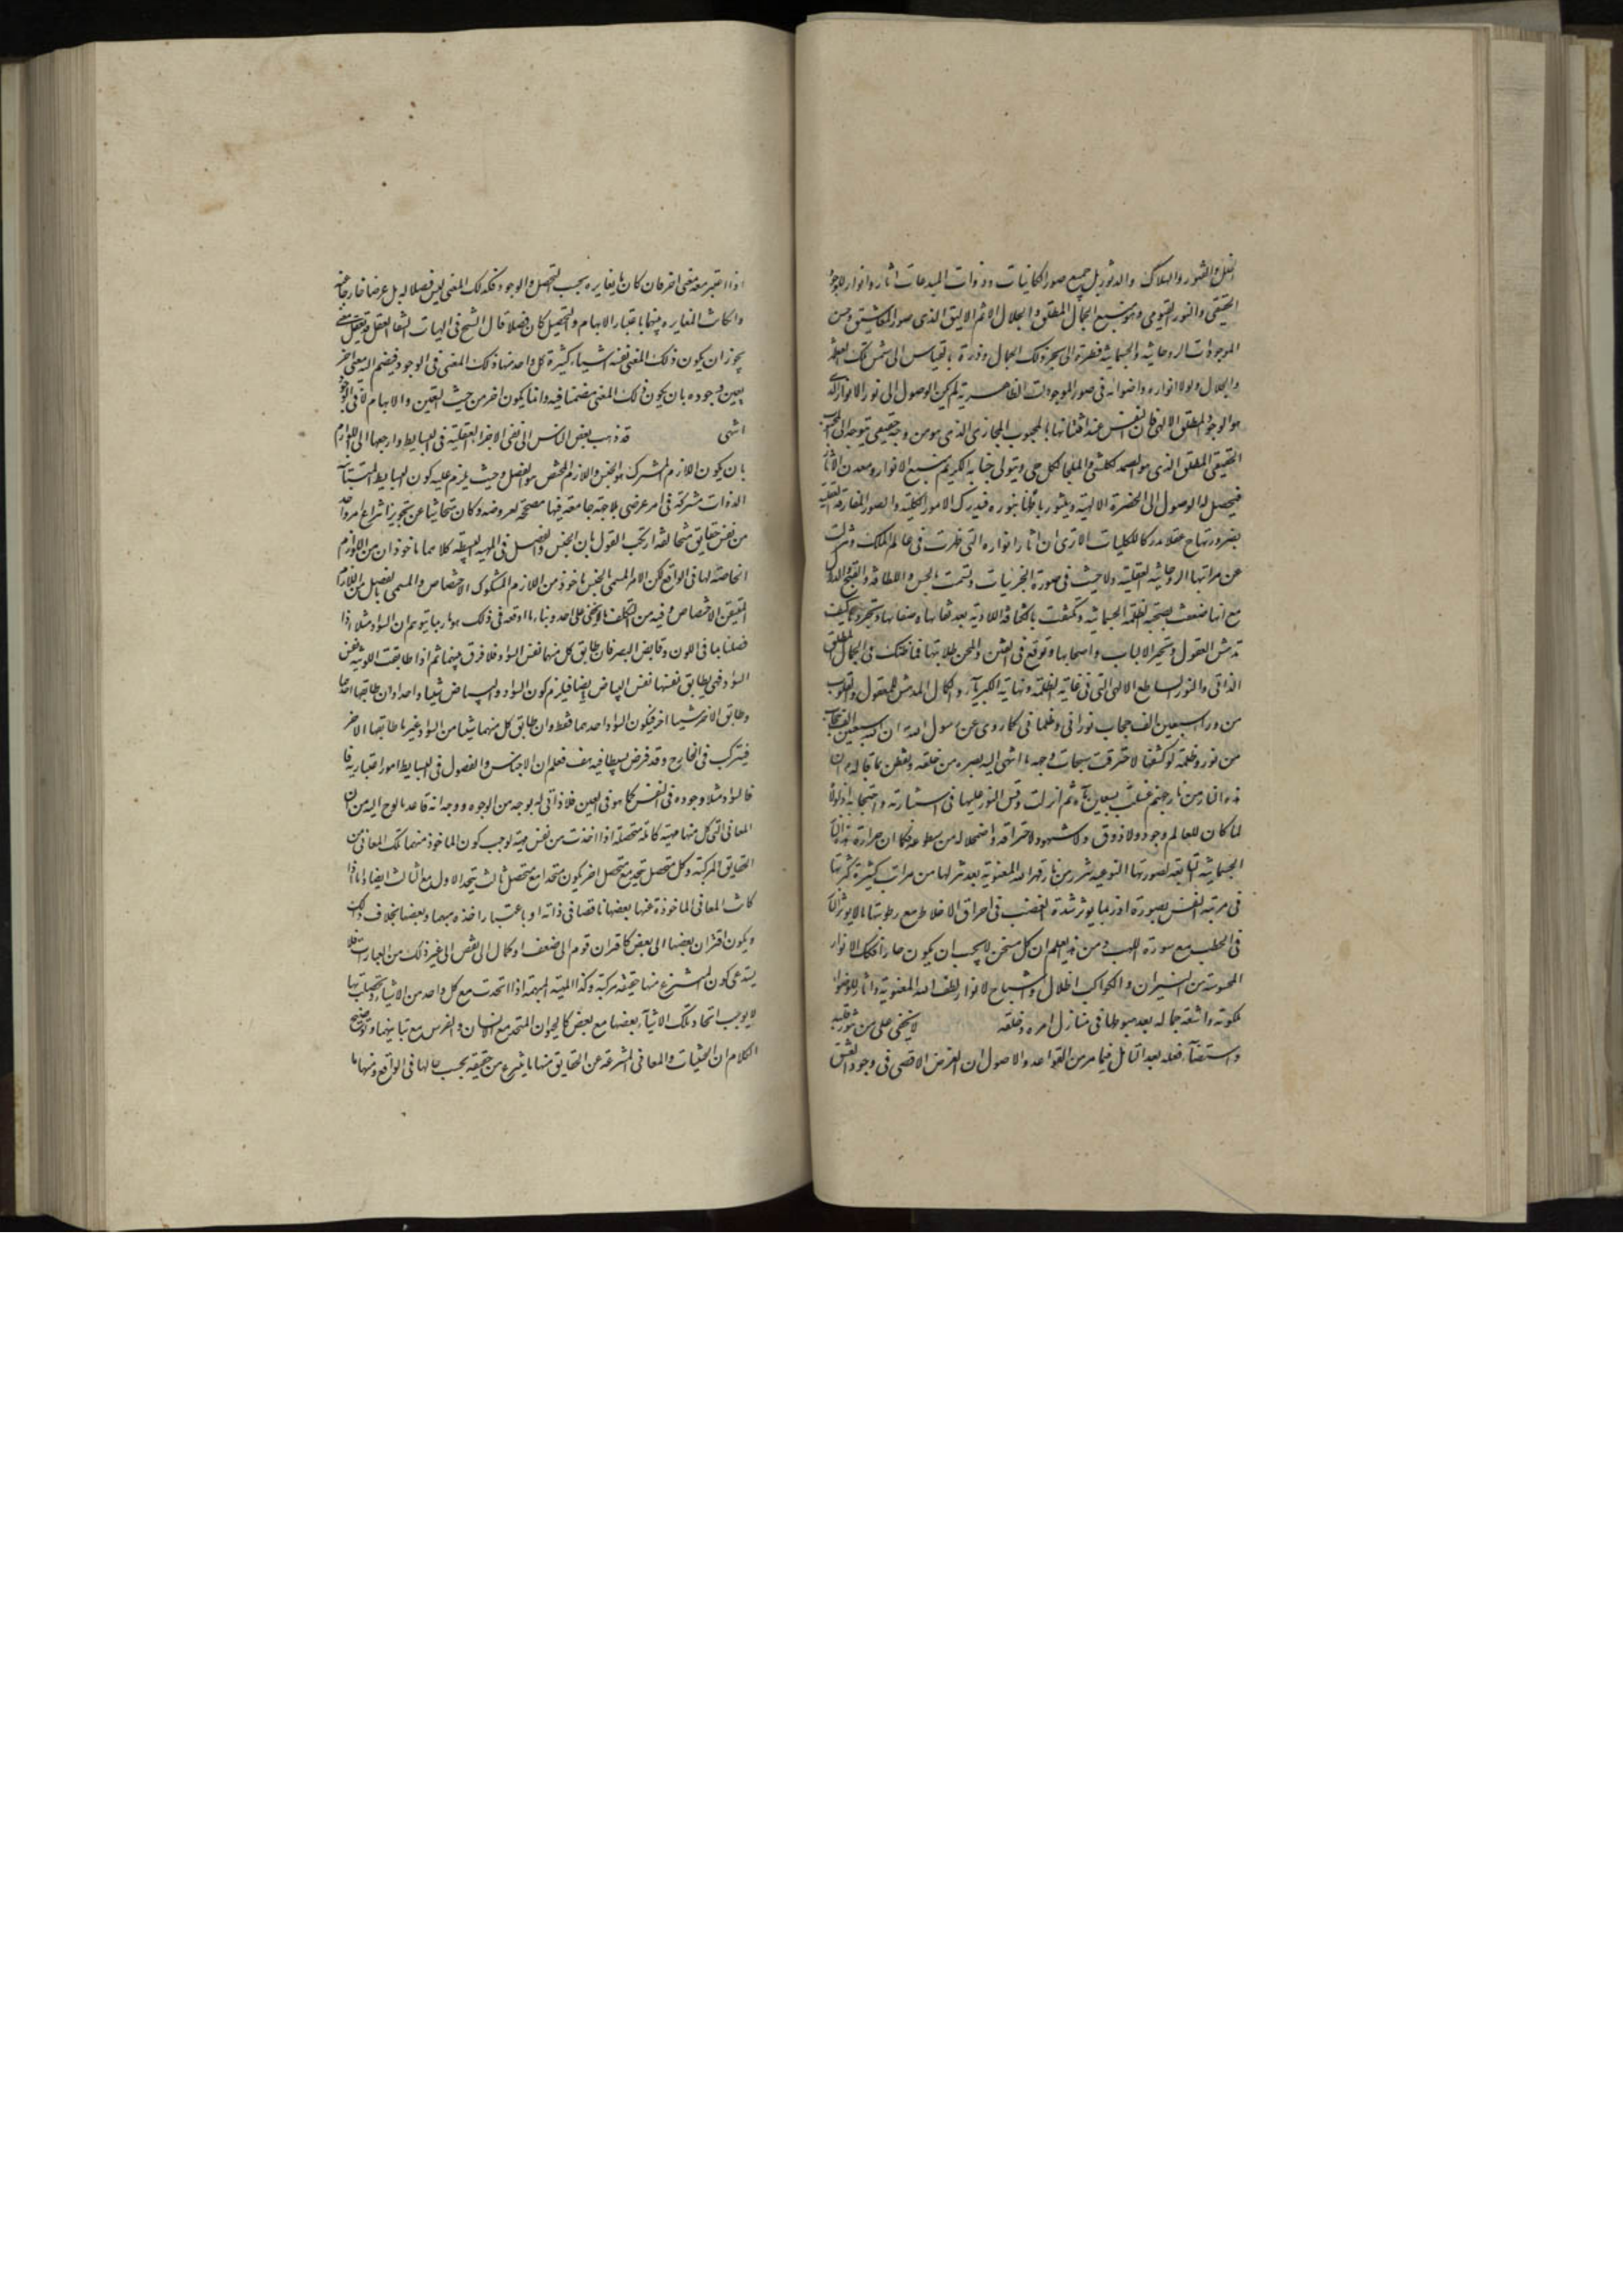 الحقيقي والنور القيومي وهو منبع الجمال المطلق والجلال الاتم الاليق الذي صور المعاشيق وحسن
الموجودات الروحانية والجسمانية قطرة الى بحر ذلك الجمال وذرة بالقياس الى شمس تلك العظمة
والجلال ولولا انواره واضوائه في صور الموجودات الظاهرية لم يكن الوصول الى نور الانوار الذي
هو الوجود المطلق الالهي فان النفس عند افتتانها بالمحبوب المجازي الذي هو من وجه حقيقي يتوجه الى المحبوب
الحقيقي المطلق الذي هو الصمد لكل شيء والملجأ لكل حي ويتولى جنابه الكريم منبع الانوار ومعدن الاثار
فيحصل له الوصول الى الحضرة الالهية ويتنور باطنا بنوره فيدرك الامور الكلية والصور المفارقة العقلية
بصيرورتها ح عقلا مدركا للكليات الا ترى ان اثار انواره التي ظهرت في عالم الملك ونزلت
عن مراتبها الروحانية العقلية ولاحت في صورة الجزئيات وتسمت بالحسن واللطافة والغنج والدلال
مع انها ضعفت بصحبة الظلمة الجسمانية وتكثفت بالكثافة المادية بعد نقائها وصفائها وتجردها كيف
تدهش العقول وتحير الالباب واصحابها وتوقع في الفتن والمحن طلابها فما ظنك في الجمال المطلق
الذاتي والنور الساطع الالهي التي في غاية العظمة ونهاية الكبرياء والكمال المدهش للعقول والقلوب
من وراء سبعين الف حجاب نوراني وظلماني كما روي عن رسول الله ان لله سبعين الف حجاب
من نور وظلمة لو كشفها لاحترقت سبحات وجهه ما انتهى اليه بصره من خلقه وتفطن بما قاله ان
هذه النار من نار جهنم غسلت بسبعين ماء ثم انزلت وقس النور عليها في استنارته واحتجابه اذ لولاه
لما كان للعالم وجود ولا ذوق ولا شهود ولاحتراقه واضمحلاله من سطوعه فكما ان حرارة هذه النار
الجسمانية التابعة لصورتها النوعية شرر من نار قهر الله المعنوية بعد تنزلها من مراتب كثيرة كتنزلها
في مرتبة النفس بصورة اذ ربما يوثر شدة الغضب في احراق الاخلاط مع رطوبتها ما لا يوثر النار
في الحطب مع يبوسته ومن هذا يعلم ان كل مسخن لا يجب ان يكون حارا فكك الانوار
المحسوسة من النيران والكواكب اظلال واشباح لانوار لطف الله المعنوية واثار لاضواء
ملكوته واشعة جماله بعد هبوطها في منازل امره وخلقه لا يخفى على من تنور قلبه
واستضاء عقله بعد التامل فيما مر من القواعد والاصول ان الغرض الاقصى في وجود العشق
اذا اعتبر معه معنى اخر فان كان مما يغايره بحسب التحصل والوجود فكذلك المعنى ليس فصلا له بل عرضا خارجا عنه
وان كانت المغايرة بينهما باعتبار الابهام والتحصيل كان فصلا قال الشيخ في الهيات الشفا العقل قد يعقل معنى
يجوز ان يكون ذلك المعنى نفسه اشياء كثيرة كل واحد منها ذلك المعنى في الوجود فيضم اليه معنى اخر
يعين وجوده بان يكون ذلك المعنى متضمنا فيه وانما يكون اخر من حيث التعين والابهام لا في الوجود
انتهى قد ذهب بعض الناس الى نفي الاجزاء العقلية في البسايط وارجعها الى اللوازم
بان يكون اللازم المشترك هو الجنس واللازم المختص هو الفصل وحيث يلزم عليه كون البسايط المتباينة
الذوات مشتركة في امر عرضي بلا جهة جامعة فيها مصححة لعروضه وكان متحاشيا عن تجويز انتزاع امر واحد
من نفس حقايق متخالفة ارتكب القول بان الجنس والفصل في المهية البسيطة كلاهما ماخوذان من اللوازم
الخاصة لها في الواقع لكن الامر المسمى بالجنس ماخوذ من اللازم المشكوك الاختصاص والمسمى بالفصل من اللازم
المتيقن الاختصاص وفيه من التكلف ما لا يخفى على احد وبناء ما اوقعه في ذلك هو ما ربما يتوهم ان السواد مثلا اذا
فصلناه الى اللون وقابض البصر فان طابق كل منهما نفس السواد فلا فرق بينهما ثم اذا طابقت اللونية نفس
السواد فهي يطابق نفسها نفس البياض ايضا فيلزم كون السواد والبياض شيئا واحدا وان طابقها احدهما
وطابق الاخر شيئا اخر فيكون السواد احدهما فقط وان طابق كل منهما شيئا من السواد غير ما طابقها الاخر
فيتركب في الخارج وقد فرض بسيطا فيه هف فعلم ان الاجناس والفصول في البسايط امور اعتبارية فا
فالسواد مثلا وجوده في النفس كما هو في العين فلا ذاتي له بوجه من الوجوه ووجه اندفاعه ما لوح اليه من ان
المعاني التي كل منها مهية كاملة متحصلة اذا اخذت من نفس مهية لوجب كون الماخوذ منهما تلك المعاني من
الحقايق المركبة وكل متحصل يتحد مع متحصل اخر يكون متحدا مع متحصل ثالث يتحد الاول مع الثالث ايضا واما اذا
كانت المعاني الماخوذة عنها بعضها ناقصا في ذاته او باعتبار اخذه مبهما وبعضها بخلاف ذلك
ويكون اقتران بعضها الى بعض كاقتران قوة الى ضعف او كمال الى نقص الى غير ذلك من العبارات فلا
يستدعي كون المنتزع منها حقيقة مركبة وكذا المهية المبهمة اذا اتحدت مع كل واحد من الاشياء وتحصلت بها
لا يوجب اتحاد تلك الاشياء بعضها مع بعض كالحيوان المتحد مع الانسان والفرس مع تباينهما وتوضيح
الكلام ان الحيثيات والمعاني المنتزعة عن الحقايق منها ما ينتزع من حقيقة بحسب حالها في الواقع ومنها ما